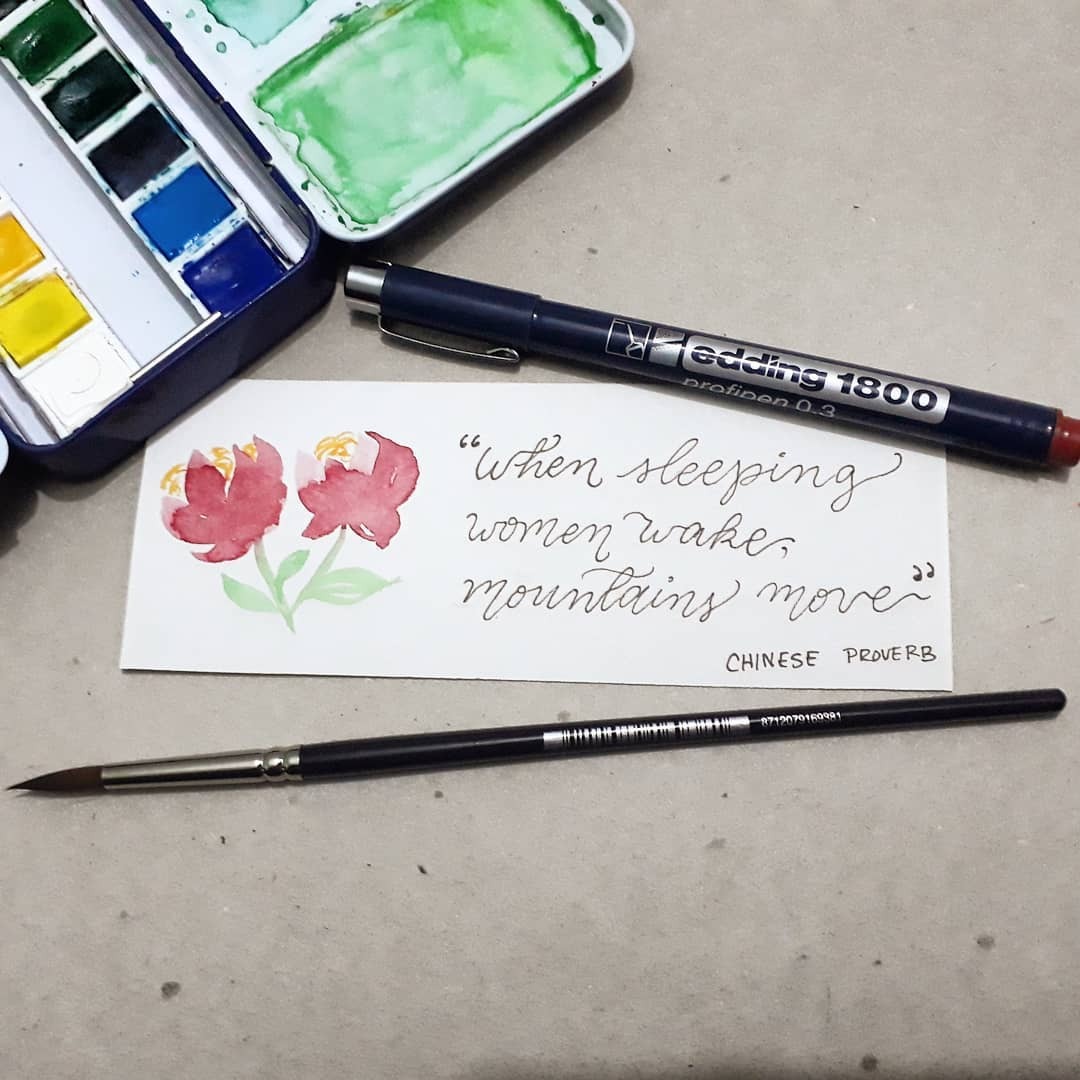 edding 1800
profipen 0.3
“when sleeping
women wake,
mountains move”
CHINESE PROVERB
8712079169381